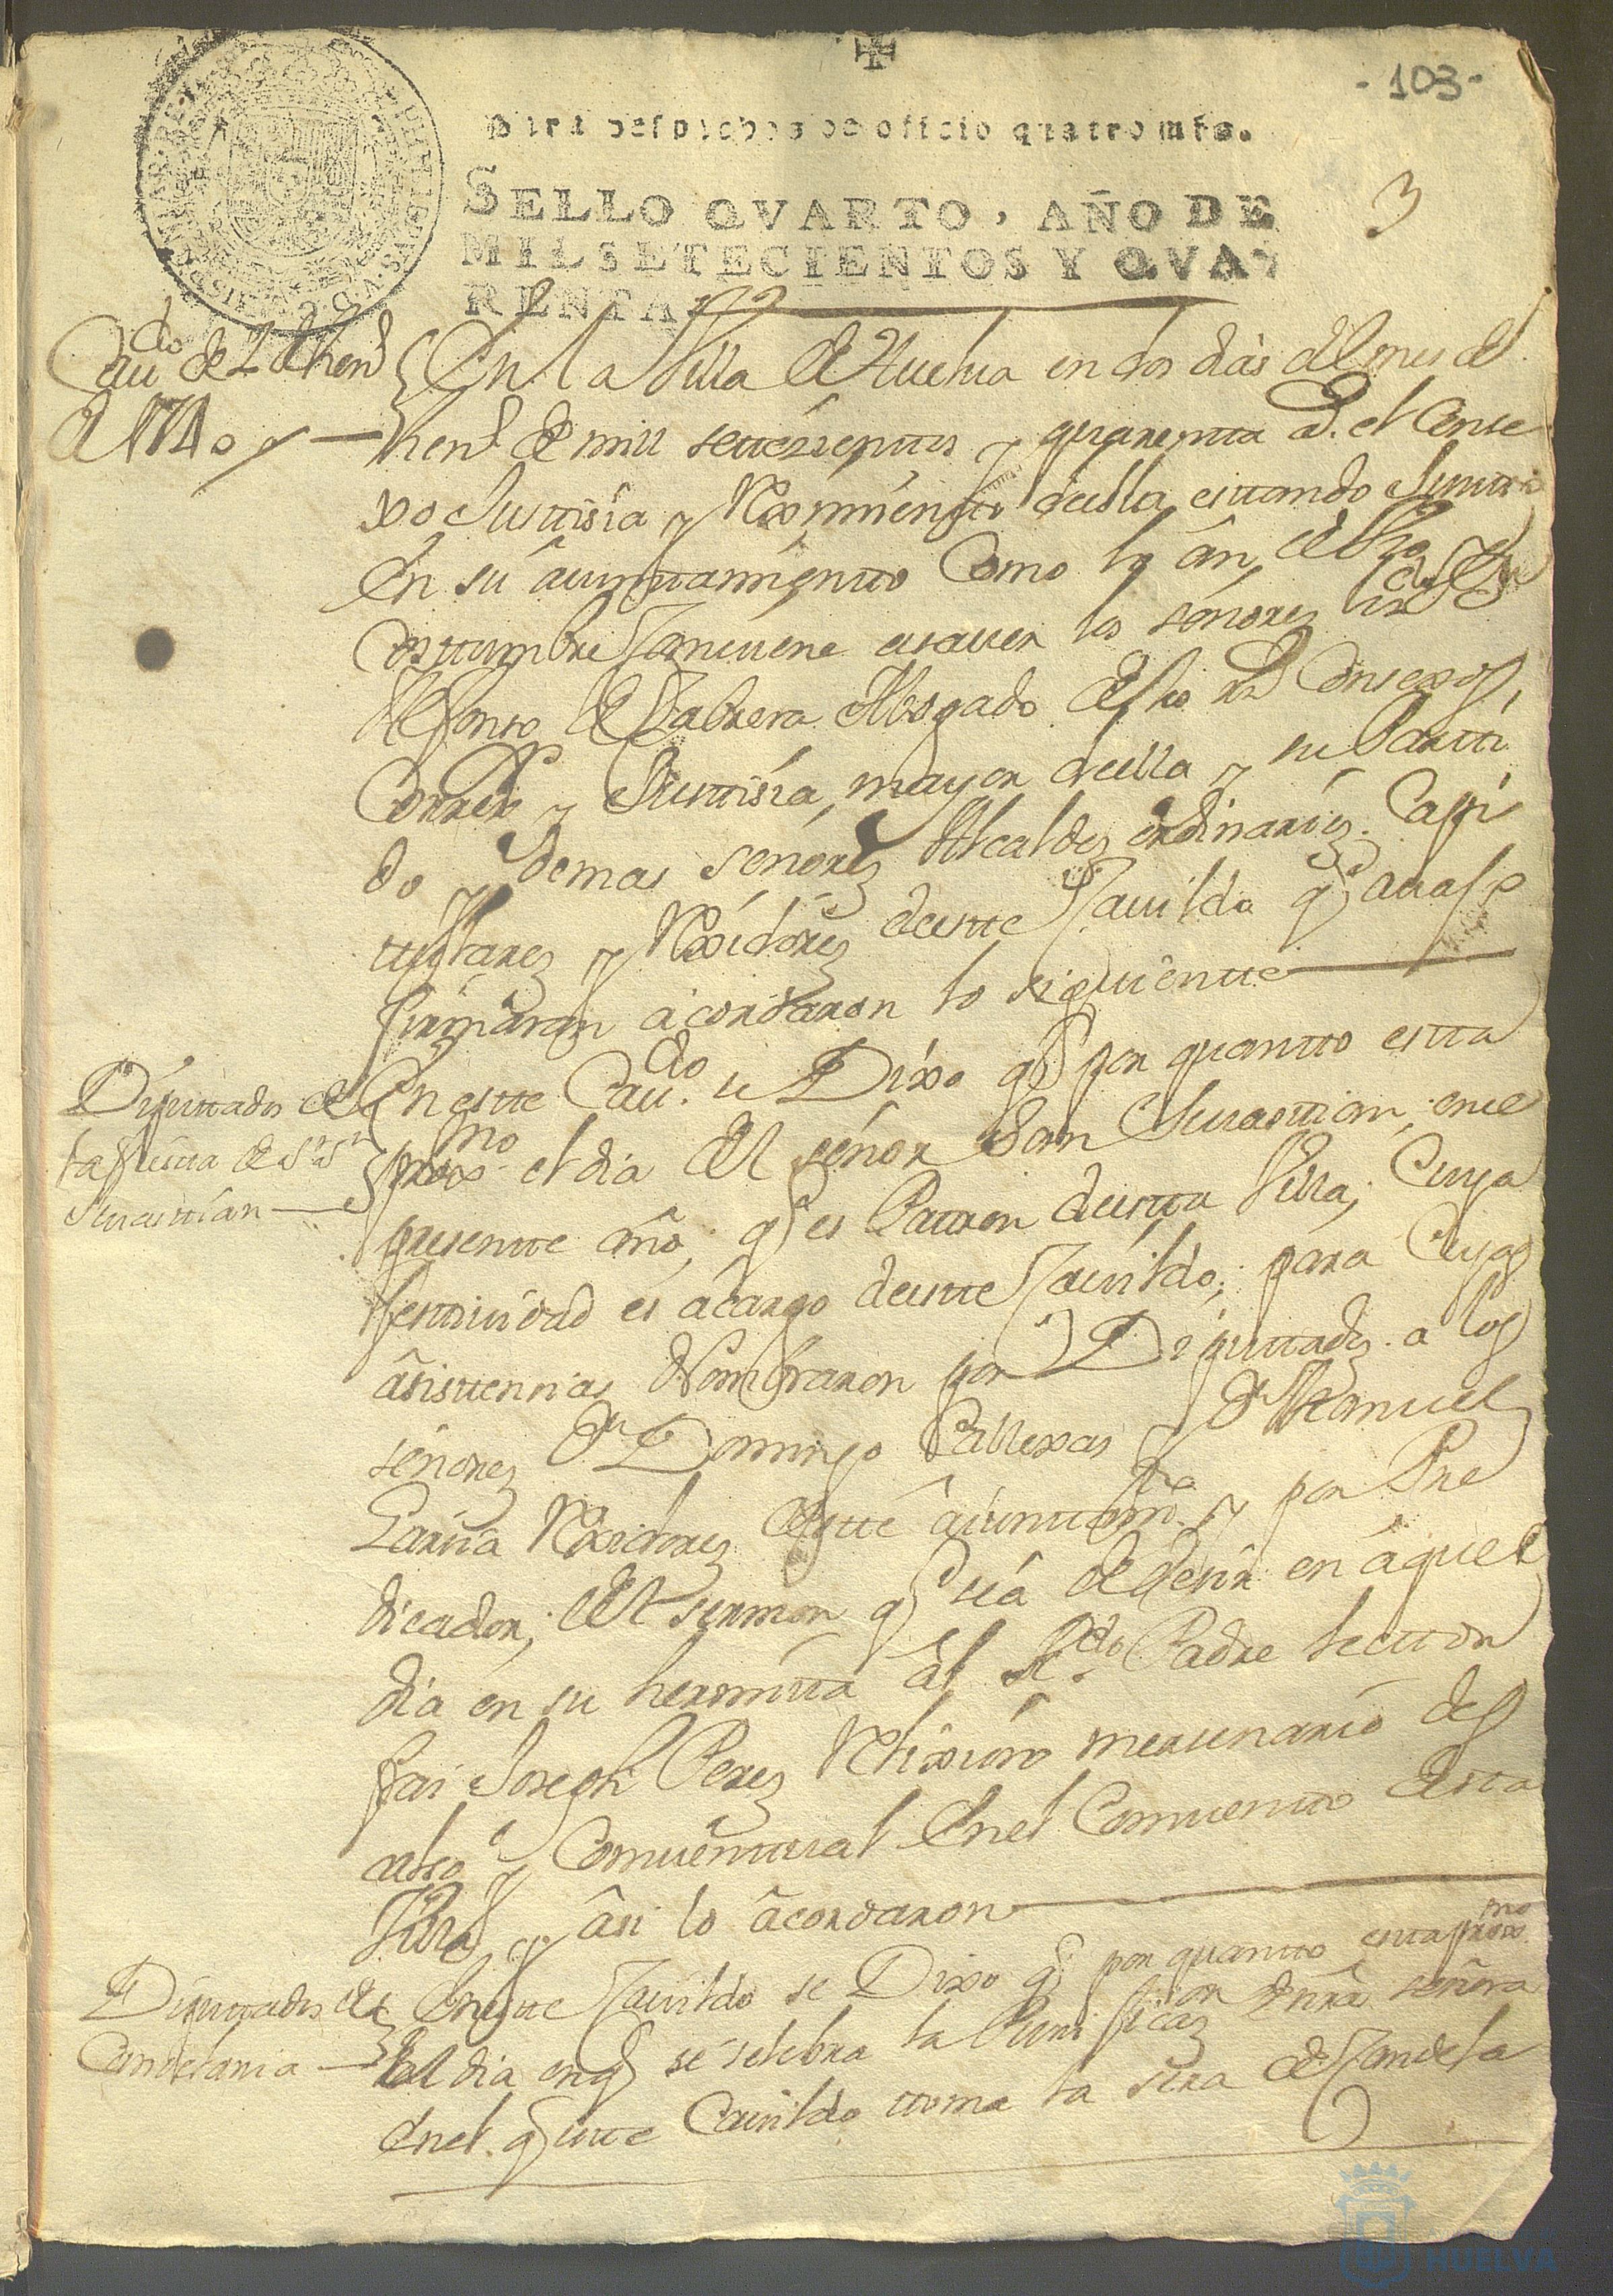 - 103 -
Para despachos de oficio quatro mrs.
SELLO QVARTO, AÑO DE
MIL SETECIENTOS Y QVA-
RENTA
3
Caudo de 2 de hen.o
de 1740
En la Villa de Huelua en dos dias del mes de
hen.o de mill settezientos y quarenta a.s el Conse
xo Justtisia y Reximiento deella esttando Juntto
en su aiunttamientto Como lo an de Uso y
Costtumbre Combiene asauer los señores liz.do D.n
Alfonso de Cabrera Abogado de los R.s Consexos,
Correx.or y Justtisia mayor deella y su Partti
do y demas señores Alcaldes ordinarios Capi
ttulares y Rexidores deestte Cauildo q.e auajo
firmaran acordaron lo siguientte
Diputtados de
la fiesta de S.r S.n
Seuasttian
En estte Cau.do se Dixo q.e por quantto estta
prox.mo el dia del señor San Seuasttian, en el
presentte año, q.e es Pattron deestta Villa, Cuya
festtiuidad es a cargo deestte Cauildo; para Cuyas
asisttencias Nombraron por Diputtados a los
señores D.n Domingo Vallexas y D.n Manuel
Garcia Rexidores destte aiunttam.to y por Pre
dicador, del sermon q.e sea de desir en aquel
dia en su hermitta al R.do Padre lecttor
frai Joseph Perez Relixioso mersenario des
calso y Conuenttual en el Conuentto destta
Villa y asi lo acordaron
Diputtados de
Candelaria
En estte Cauildo se Dixo q.e por quantto estta prox.mo
el dia en q.e se selebra la Purificaz.ion de nra señora
en el q.e estte Cauildo ttoma la sera de Candela
HUELVA